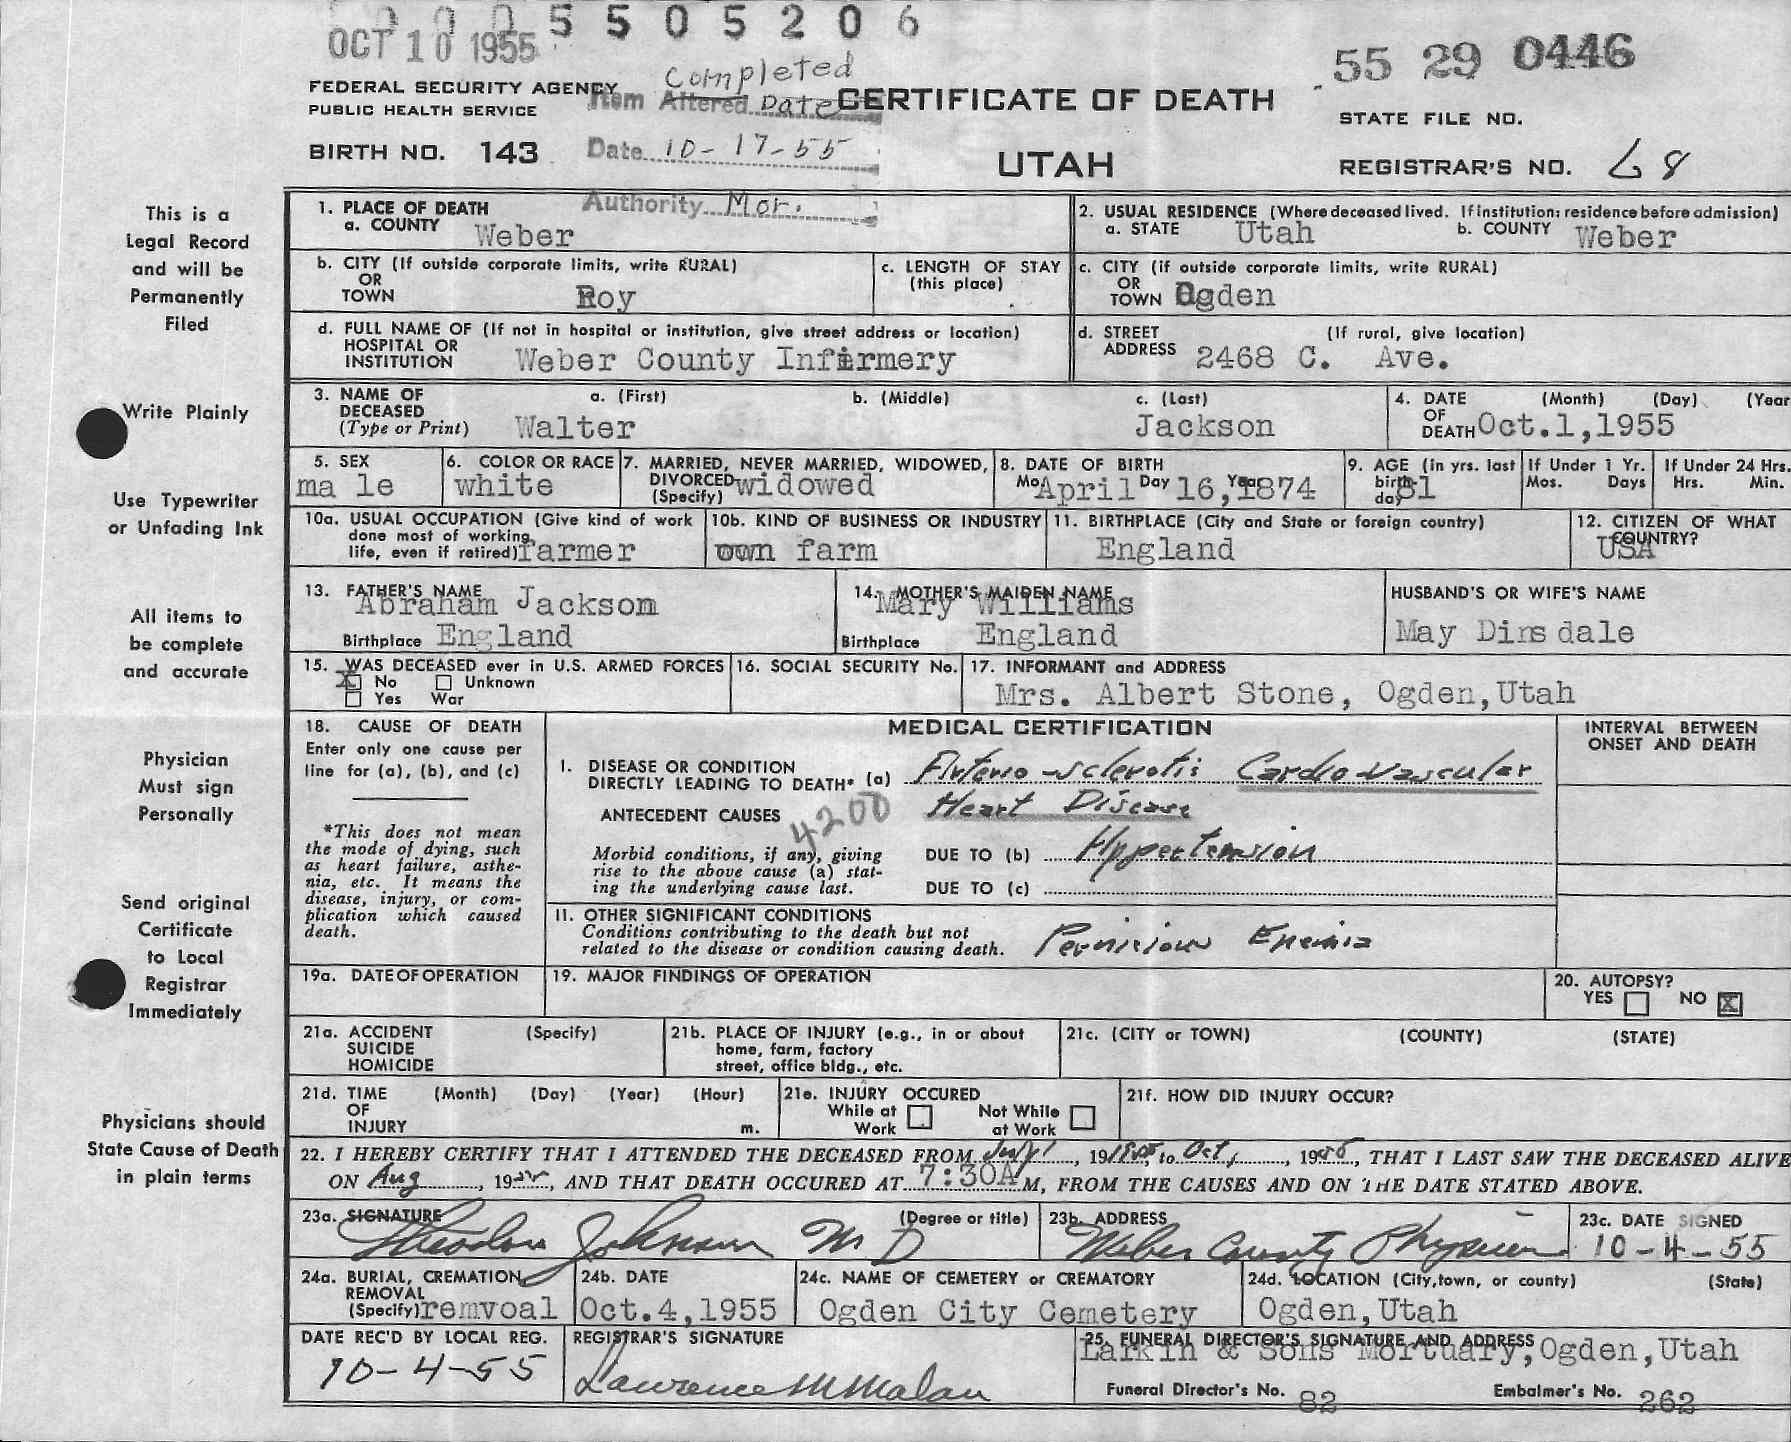 0 0 0 5 5 0 5 2 0 6
OCT 10 1955
55 29 0446
Completed
FEDERAL SECURITY AGENCY
PUBLIC HEALTH SERVICE
Item Altered Date
CERTIFICATE OF DEATH
STATE FILE NO.
BIRTH NO. 143
Date 10-17-55
UTAH
REGISTRAR'S NO. 68
Authority Mor.
This is a
Legal Record
and will be
Permanently
Filed
Write Plainly
Use Typewriter
or Unfading Ink
All items to
be complete
and accurate
Physician
Must sign
Personally
Send original
Certificate
to Local
Registrar
Immediately
Physicians should
State Cause of Death
in plain terms
1. PLACE OF DEATH
a. COUNTY Weber
2. USUAL RESIDENCE (Where deceased lived. If institution: residence before admission)
a. STATE Utah b. COUNTY Weber
b. CITY (If outside corporate limits, write RURAL)
OR
TOWN Roy
c. LENGTH OF STAY
(this place)
c. CITY (if outside corporate limits, write RURAL)
OR
TOWN Ogden
d. FULL NAME OF (If not in hospital or institution, give street address or location)
HOSPITAL OR
INSTITUTION Weber County Infirmery
d. STREET (If rural, give location)
ADDRESS 2468 C. Ave.
3. NAME OF a. (First) b. (Middle) c. (Last)
DECEASED
(Type or Print) Walter Jackson
4. DATE (Month) (Day) (Year
OF
DEATH Oct.1,1955
5. SEX
ma le
6. COLOR OR RACE
white
7. MARRIED, NEVER MARRIED, WIDOWED,
DIVORCED
(Specify) widowed
8. DATE OF BIRTH
Mo. April Day 16, Year 1874
9. AGE (in yrs. last
birth-
day) 81
If Under 1 Yr.
Mos. Days
If Under 24 Hrs.
Hrs. Min.
10a. USUAL OCCUPATION (Give kind of work
done most of working
life, even if retired) farmer
10b. KIND OF BUSINESS OR INDUSTRY
own farm
11. BIRTHPLACE (City and State or foreign country)
England
12. CITIZEN OF WHAT
COUNTRY?
USA
13. FATHER'S NAME
Abraham Jackson
Birthplace England
14. MOTHER'S MAIDEN NAME
Mary Williams
Birthplace England
HUSBAND'S OR WIFE'S NAME
May Dinsdale
15. WAS DECEASED ever in U.S. ARMED FORCES
X No Unknown
Yes War
16. SOCIAL SECURITY No.
17. INFORMANT and ADDRESS
Mrs. Albert Stone, Ogden,Utah
18. CAUSE OF DEATH
Enter only one cause per
line for (a), (b), and (c)
*This does not mean
the mode of dying, such
as heart failure, asthe-
nia, etc. It means the
disease, injury, or com-
plication which caused
death.
MEDICAL CERTIFICATION
INTERVAL BETWEEN
ONSET AND DEATH
I. DISEASE OR CONDITION
DIRECTLY LEADING TO DEATH* (a) Arterio-sclerotis Cardio-vascular
ANTECEDENT CAUSES Heart Disease
4200
Morbid conditions, if any, giving
rise to the above cause (a) stat-
ing the underlying cause last.
DUE TO (b) Hypertension
DUE TO (c)
II. OTHER SIGNIFICANT CONDITIONS
Conditions contributing to the death but not
related to the disease or condition causing death. Pernicious Enemia
19a. DATE OF OPERATION
19. MAJOR FINDINGS OF OPERATION
20. AUTOPSY?
YES NO X
21a. ACCIDENT (Specify)
SUICIDE
HOMICIDE
21b. PLACE OF INJURY (e.g., in or about
home, farm, factory
street, office bldg., etc.
21c. (CITY or TOWN) (COUNTY) (STATE)
21d. TIME (Month) (Day) (Year) (Hour)
OF
INJURY m.
21e. INJURY OCCURED
While at Not While
Work at Work
21f. HOW DID INJURY OCCUR?
22. I HEREBY CERTIFY THAT I ATTENDED THE DECEASED FROM July 1, 1955, to Oct, 1955, THAT I LAST SAW THE DECEASED ALIVE
ON Aug, 1955, AND THAT DEATH OCCURED AT 7:30A M, FROM THE CAUSES AND ON THE DATE STATED ABOVE.
23a. SIGNATURE (Degree or title)
Theodore Johnson M D
23b. ADDRESS
Weber County Physician
23c. DATE SIGNED
10-4-55
24a. BURIAL, CREMATION
REMOVAL
(Specify) remvoal
24b. DATE
Oct.4,1955
24c. NAME OF CEMETERY or CREMATORY
Ogden City Cemetery
24d. LOCATION (City,town, or county) (State)
Ogden,Utah
DATE REC'D BY LOCAL REG.
10-4-55
REGISTRAR'S SIGNATURE
Lawrence M Malan
25. FUNERAL DIRECTOR'S SIGNATURE AND ADDRESS
Larkin & Sons Mortuary,Ogden,Utah
Funeral Director's No. 82 Embalmer's No. 262